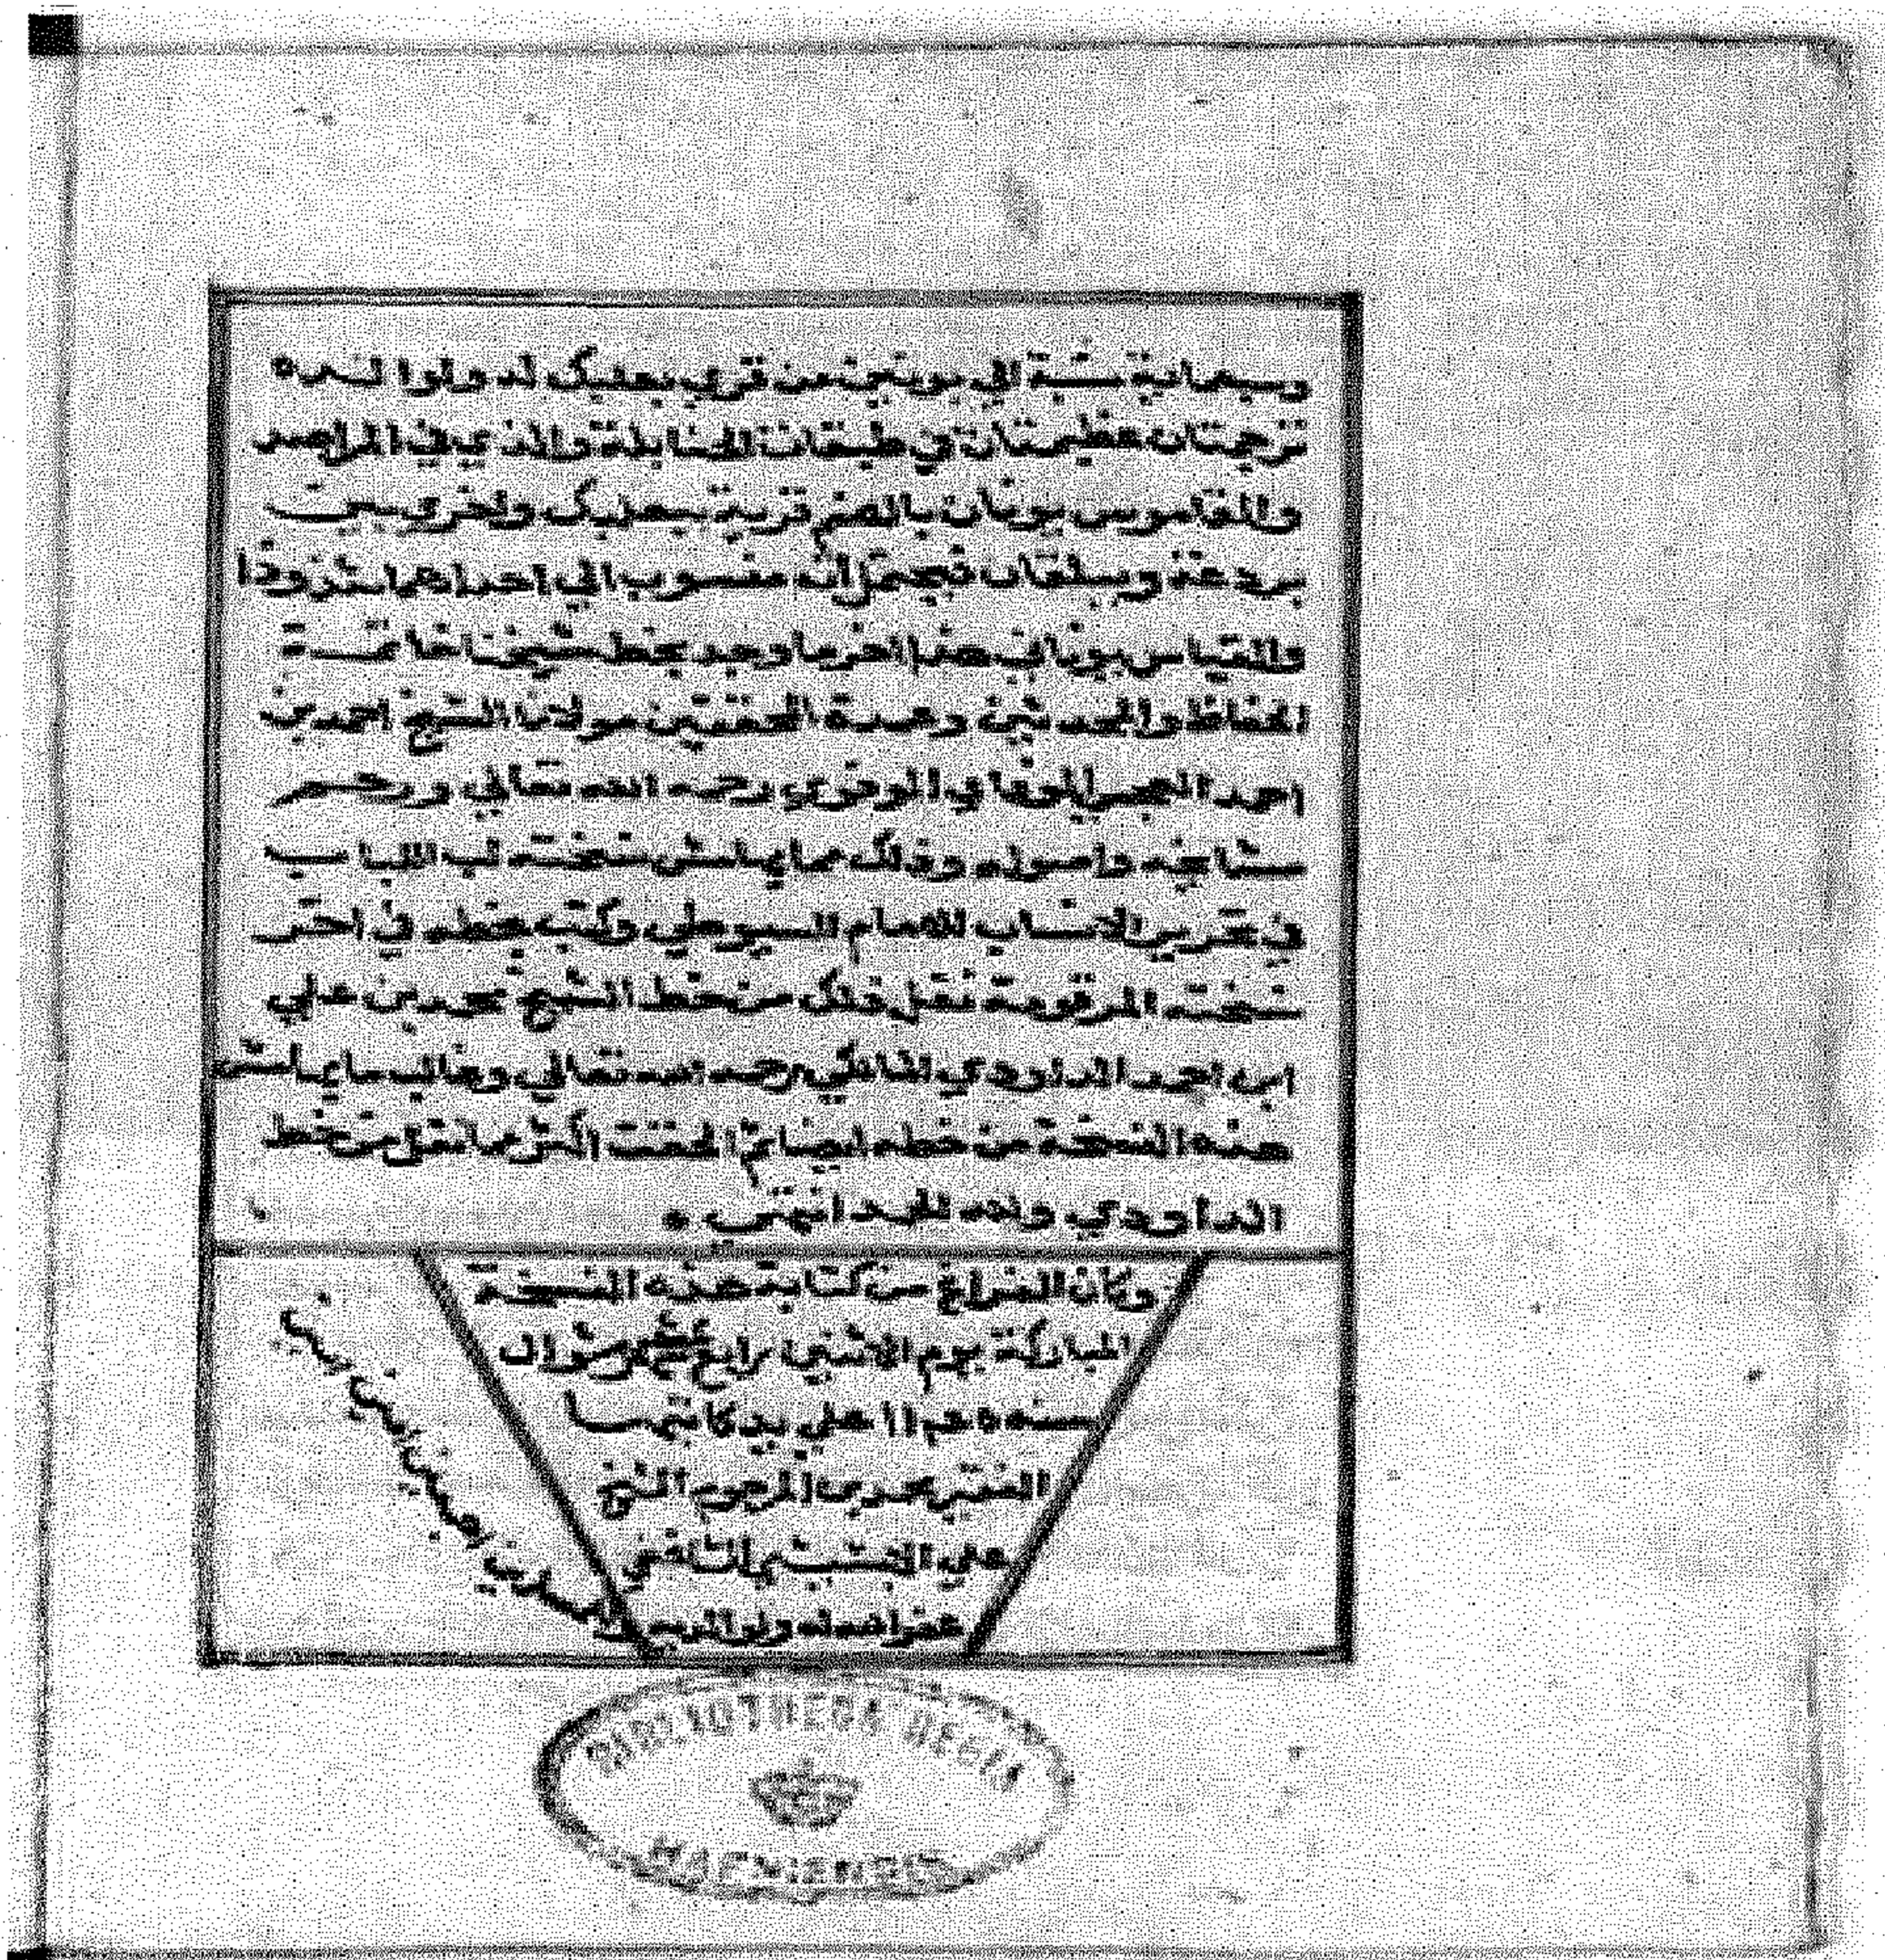 وسبعماية نسبة الي يونين من قري بعلبك له ولوالده
ترجمتان عظيمتان في طبقات الحنابلة والذي في المراصد
والقاموس يونان بالضم قرية ببعلبك واخري بين
بردعة وبيلقان فيحتمل انه منسوب الي احداهما شذوذا
والقياس يوناني هذا اخر ما وجد بخط شيخنا خاتمة
الحفاظ والمحدثين وعمدة المحققين مولانا الشيخ احمد بن
احمد العجمي الوفاي رحمه الله تعالي ورحم
مشايخه واصوله وذلك بهامش نسخته لب اللباب
في تحرير الانساب للامام السيوطي وكتب بخطه في اخر
نسخته المرقومة نقل ذلك من خط الشيخ محمد بن علي
ابن احمد الداوودي المالكي رحمه الله تعالي وغالب ما بهامش
هذه النسخة من خطه ايضا ثم الحقت اكثر ما نقل من خط
الداوودي ولله الحمد انتهي
وكان الفراغ من كتابة هذه النسخة
المباركة يوم الاثنين رابع شهر شوال
سنه علي يد كاتبها
الفقير محمد بن المرحوم الشيخ
علي الشافعي
غفر الله له ولوالديه
BIBLIOTHECA REGIA
HAFNIENSIS